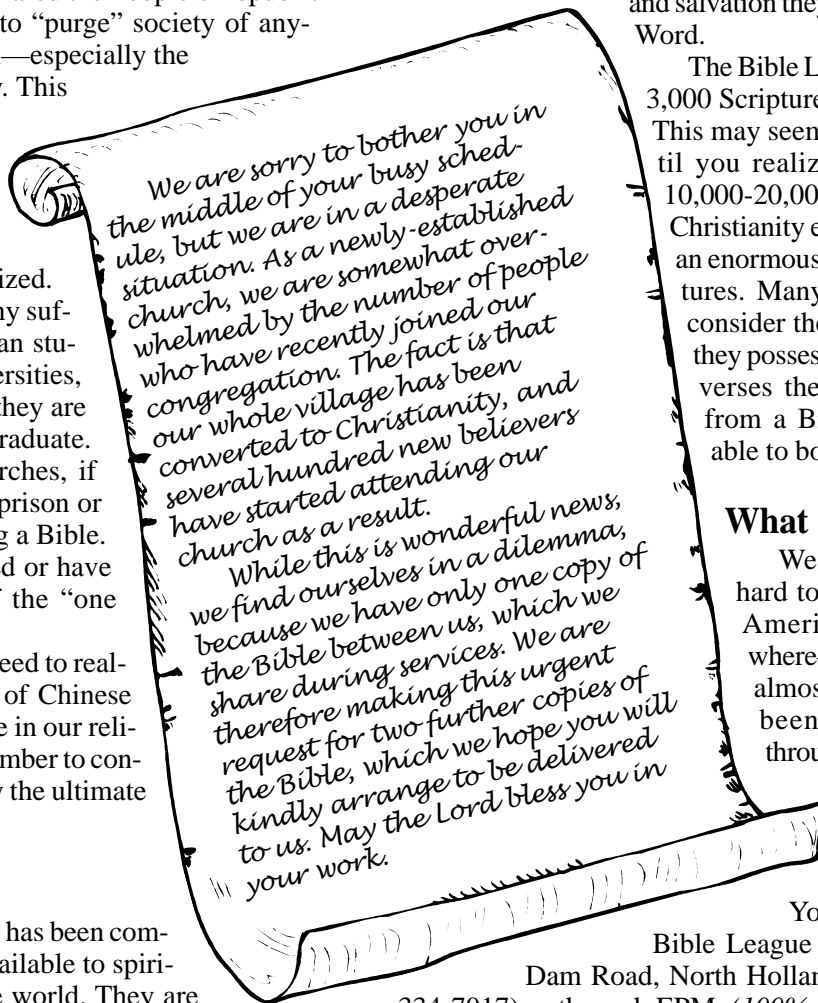 to “purge” society of any-
—especially the
. This
ized.
ny suf-
an stu-
ersities,
they are
raduate.
rches, if
prison or
g a Bible.
ed or have
f the “one
eed to real-
of Chinese
e in our reli-
mber to con-
y the ultimate
has been com-
ailable to spiri-
e world. They are
We are sorry to bother you in
the middle of your busy sched-
ule, but we are in a desperate
situation. As a newly-established
church, we are somewhat over-
whelmed by the number of people
who have recently joined our
congregation. The fact is that
our whole village has been
converted to Christianity, and
several hundred new believers
have started attending our
church as a result.
While this is wonderful news,
we find ourselves in a dilemma,
because we have only one copy of
the Bible between us, which we
share during services. We are
therefore making this urgent
request for two further copies of
the Bible, which we hope you will
kindly arrange to be delivered
to us. May the Lord bless you in
your work.
and salvation they
Word.
The Bible L
3,000 Scripture
This may seem
til you realiz
10,000-20,00
Christianity e
an enormous
tures. Many
consider the
they posses
verses the
from a B
able to bo
What
We
hard to
Ameri
where-
almos
been
throu
Yo
Bible League
Dam Road, North Hollan